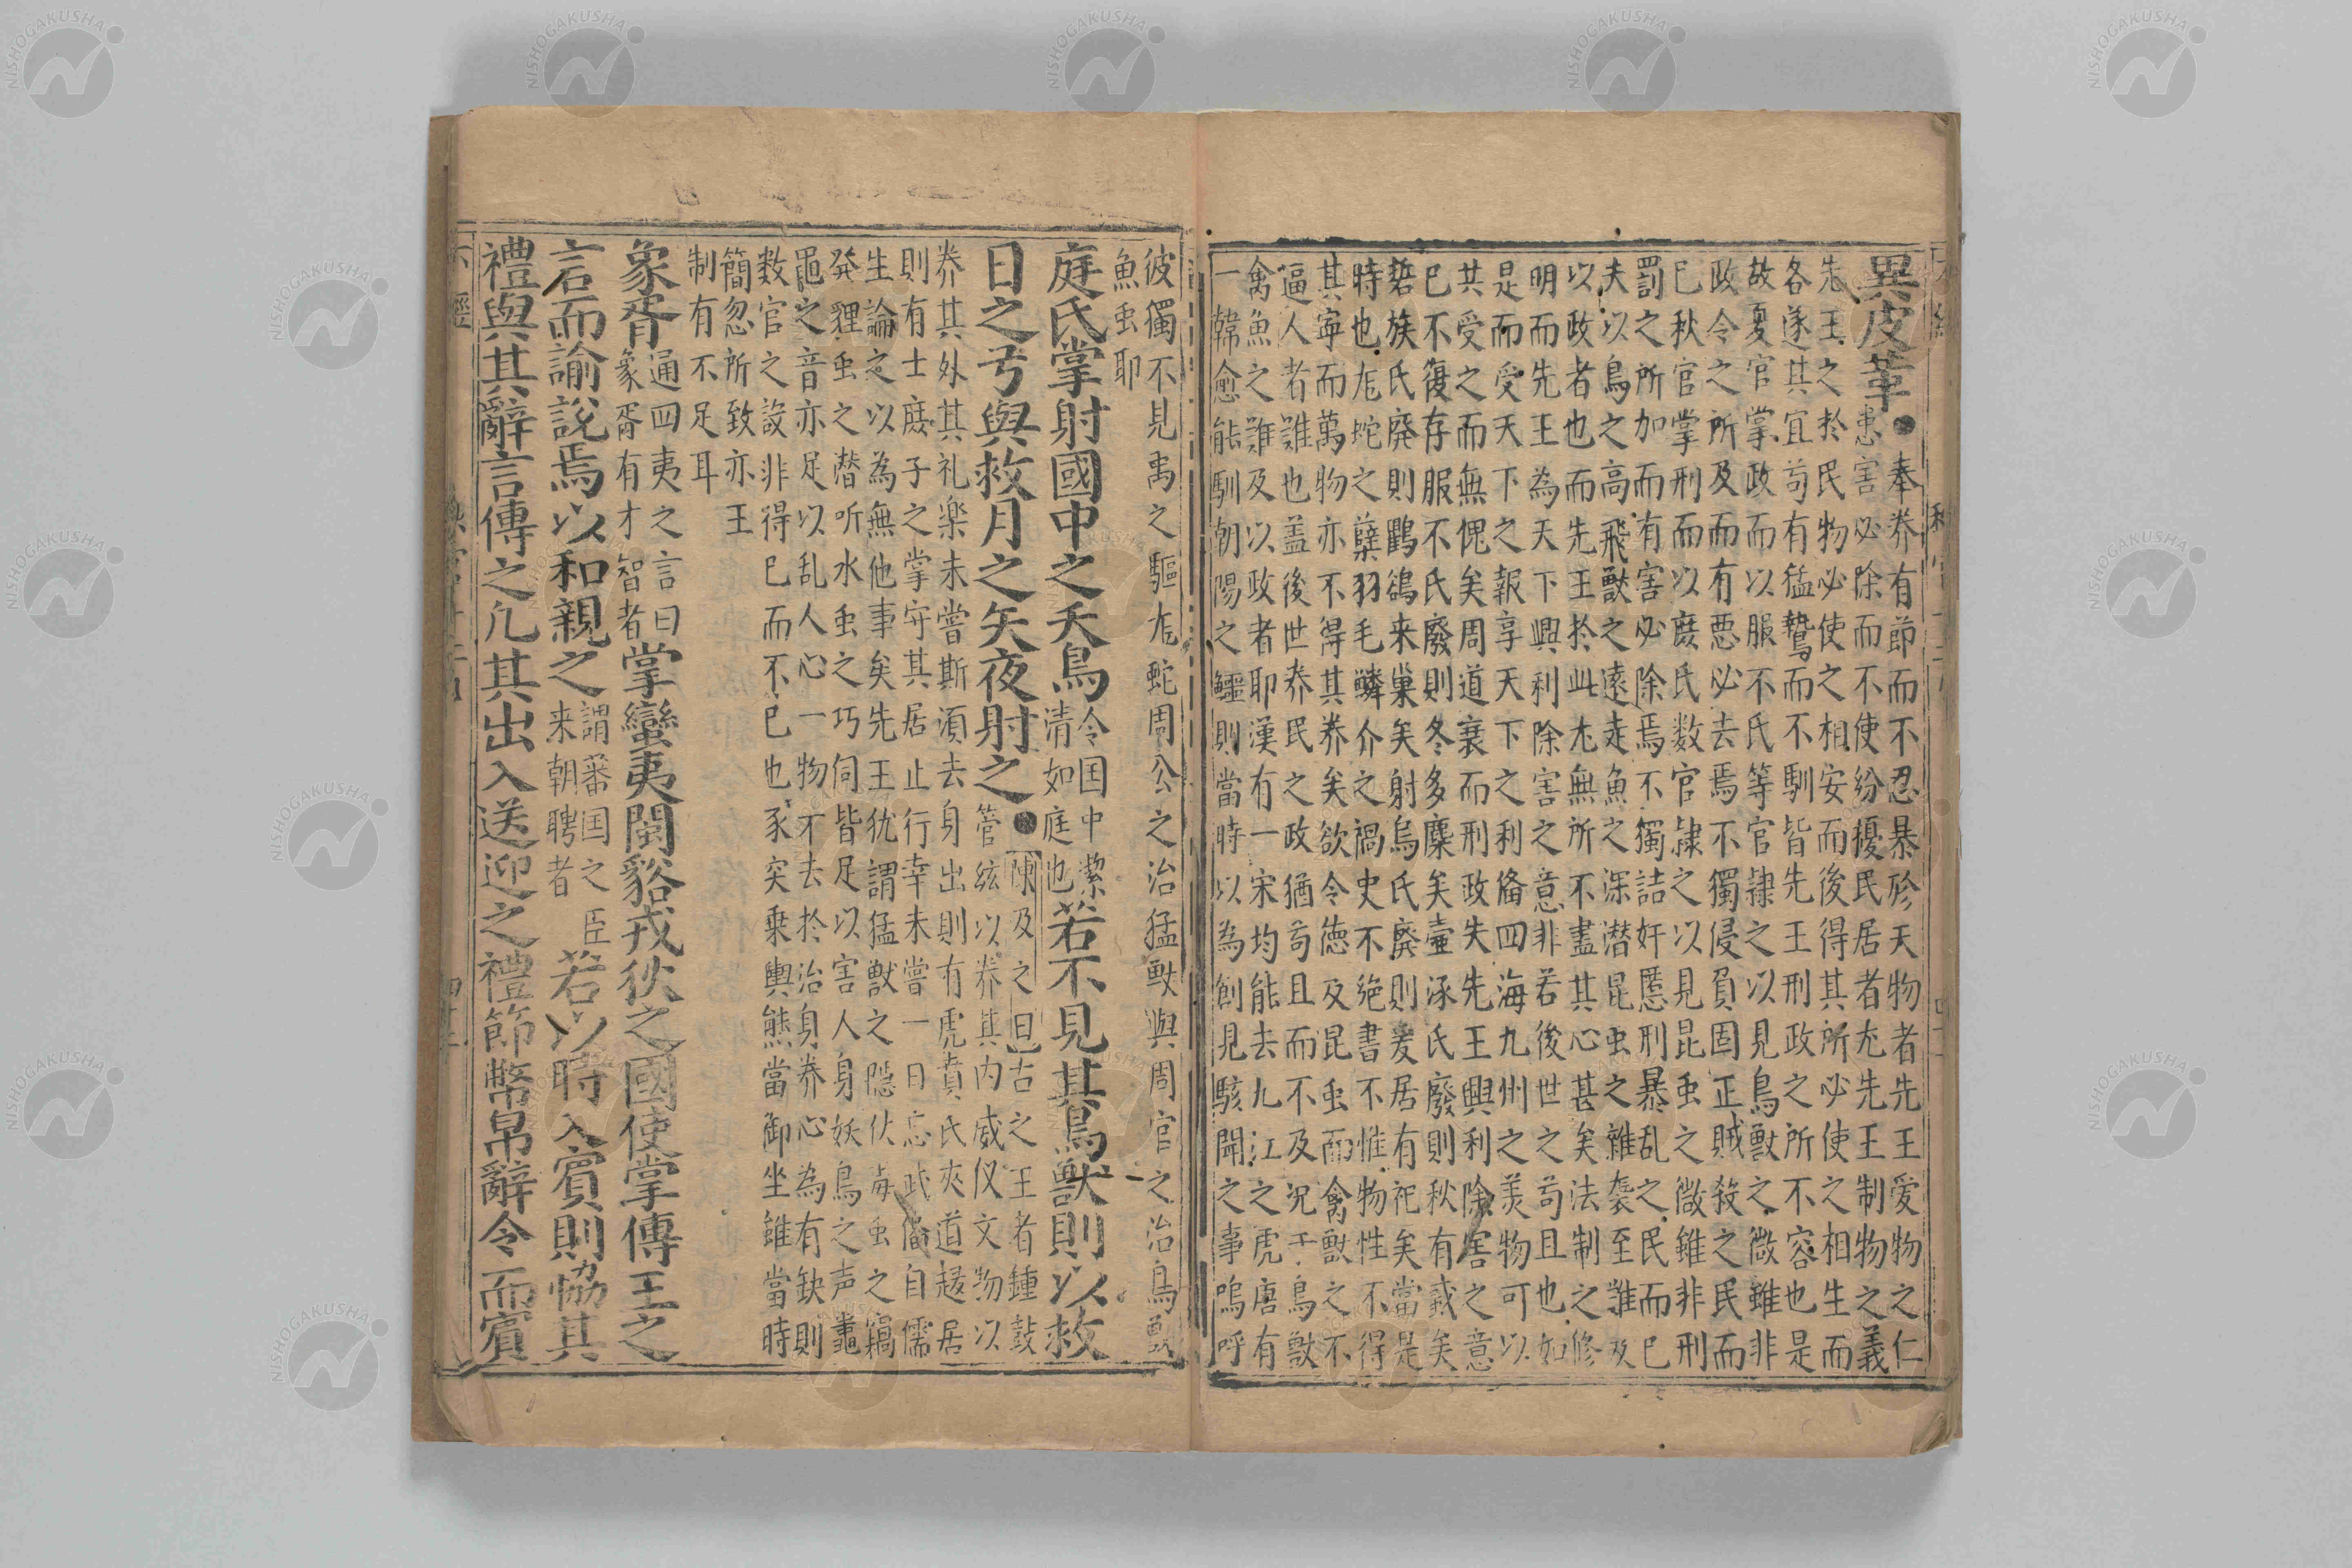 異皮革●奉养有節而不忍暴殄天物者先王愛物之仁
患害必除而不使紛擾民居者尤先王制物之義
先王之於民物必使之相安而後得其所必使之相生而
各遂其宜苟有猛鷙而不馴皆先王刑政之所不容也是
故夏官掌政而以服不氏等官隷之以見鳥獸之微雖非
政令之所及而有悪必去焉不獨侵負固正賊殺之民而
已秋官掌刑而以庶氏数官隷之以見昆虫之微雖非刑
罰之所加而有害必除焉不獨詰奸慝刑暴乱之民而已
夫以鳥之高飛獸之遠走魚之深潜昆虫之雜袭至難及
以政者也而先王於此尤無所不盡其心甚矣法制之修
明而先王為天下興利除害之意非若後世之苟且也如
是而受天下之報享天下之利俻四海九州之羙物可以
共受之而無愧矣周道衰而刑政失先王興利除害之意
已不復存服不氏廢則冬多麋矣壷涿氏廢則秋有蜮矣
硩族氏廃則鸜鵒来巢矣射烏氏廃則爰居有祀矣當是
時也虺蛇之孽羽毛鱗介之禍史不绝書不惟物性不得
其寧而萬物亦不得其养矣欲令徳及昆虫而禽獸之不
逼人者難也盖後世养民之政猶苟且而不及况于鳥獸
禽魚之難及以政者耶漢有一宋均能去九江之虎唐有
一韓愈能馴朝陽之鱷則當時以為創見駭聞之事嗚呼
彼獨不見禹之驅虺蛇周公之治猛獸與周官之治鳥獸
魚虫耶
庭氏掌射國中之夭鳥令国中潔清如庭也若不見其鳥獸則以救
日之弓與救月之矢夜射之●陳及之曰古之王者鍾鼓
管絃以养其内威仪文物以
养其外其礼楽未嘗斯湏去身出則有虎賁氏夾道趍居
則有士庶子之掌守其居止行幸未嘗一日忘武俻自儒
生論之以為無他事矣先王犹謂猛獸之隠伏毒虫之竊
発貍虫之潜听水虫之巧伺皆足以害人身妖鳥之声鼃
黽之音亦足以乱人心一物不去於治身养心為有缺則
数官之設非得已而不已也豕突乗輿熊當御坐雖當時
簡忽所致亦王
制有不足耳
象胥通四夷之言曰象胥有才智者掌蠻夷閩貉戎狄之國使掌傳王之
言而諭説焉以和親之謂蕃国之臣来朝聘者若以時入賓則恊其
禮與其辭言傳之凢其出入送迎之禮節幣帛辭令而賓